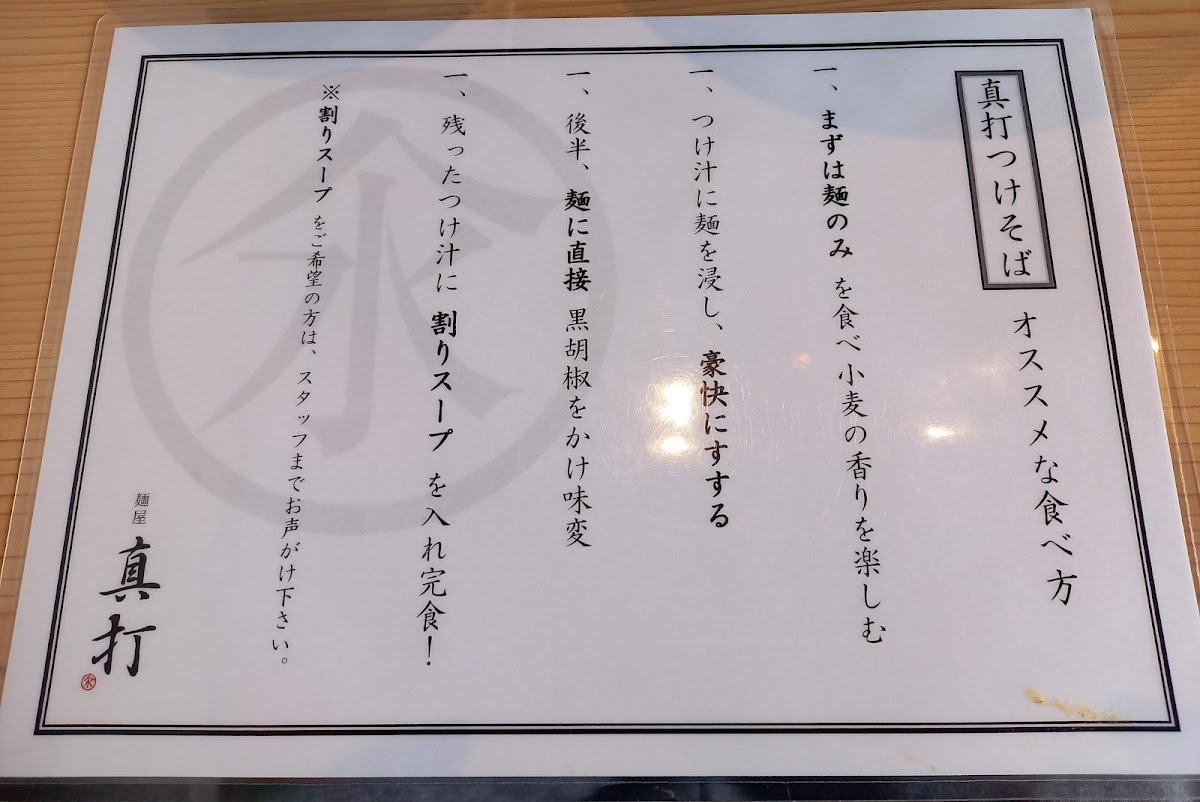 真打つけそば オススメな食べ方
一、まずは麺のみ を食べ小麦の香りを楽しむ
一、つけ汁に麺を浸し、豪快にすする
一、後半、麺に直接 黒胡椒をかけ味変
一、残ったつけ汁に 割りスープ を入れ完食！
※割りスープ をご希望の方は、スタッフまでお声がけ下さい。
麺屋 真打